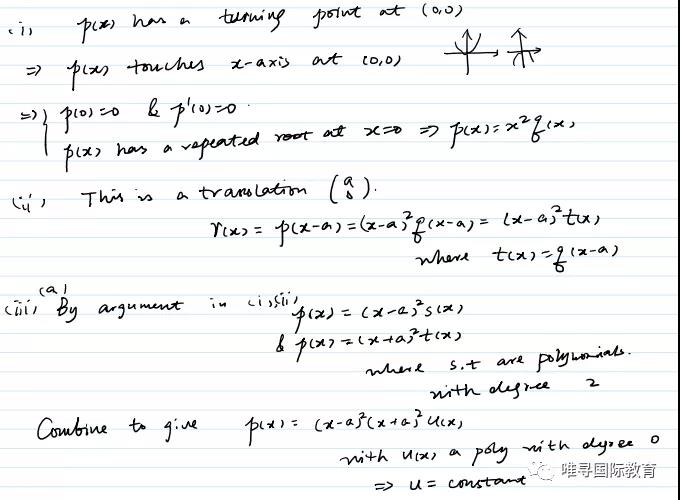 (i) p(x) has a turning point at (0,0)
⇒ p(x) touches x-axis at (0,0)
⇒ { p(0)=0 & p'(0)=0.
p(x) has a repeated root at x=0 ⇒ p(x)=x²q(x)
(ii) This is a translation (a 0).
r(x) = p(x-a) = (x-a)²q(x-a) = (x-a)²t(x)
where t(x)=q(x-a)
(iii) (a) By argument in (i), (ii), p(x) = (x-a)²s(x)
& p(x) = (x+a)²t(x)
where s.t are polynomials.
with degree 2
Combine to give p(x) = (x-a)²(x+a)²u(x)
with u(x) a poly with degree 0
⇒ u = constant
唯寻国际教育